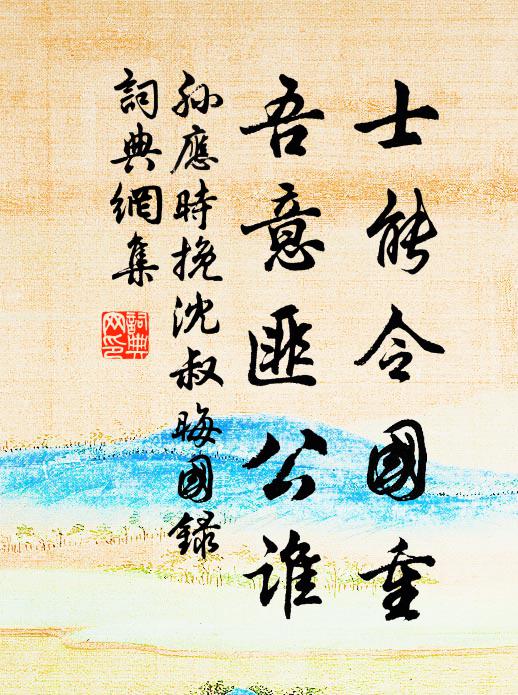 士能令國重
吾意匪公誰
孫應時挽沈叔晦國錄
詞典網集
詞典網印